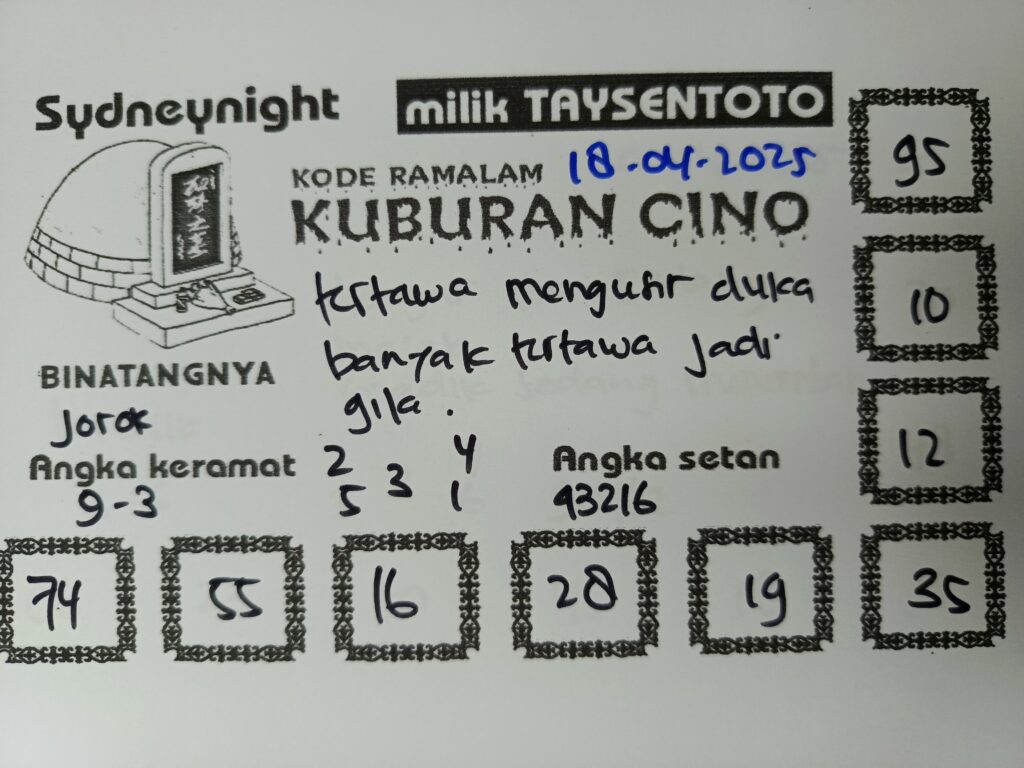 Sydneynight
milik TAYSENTOTO
KODE RAMALAM 18-04-2025
KUBURAN CINO
95
tertawa mengusir duka
banyak tertawa jadi
gila.
10
BINATANGNYA
Jorok
12
Angka keramat
9-3
2 4
3
5 1
Angka setan
93216
74 55 16 28 19 35